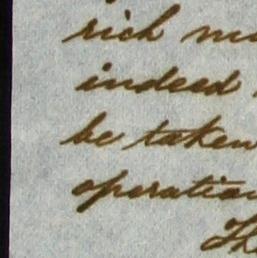 rich
indeed
be taken
operation